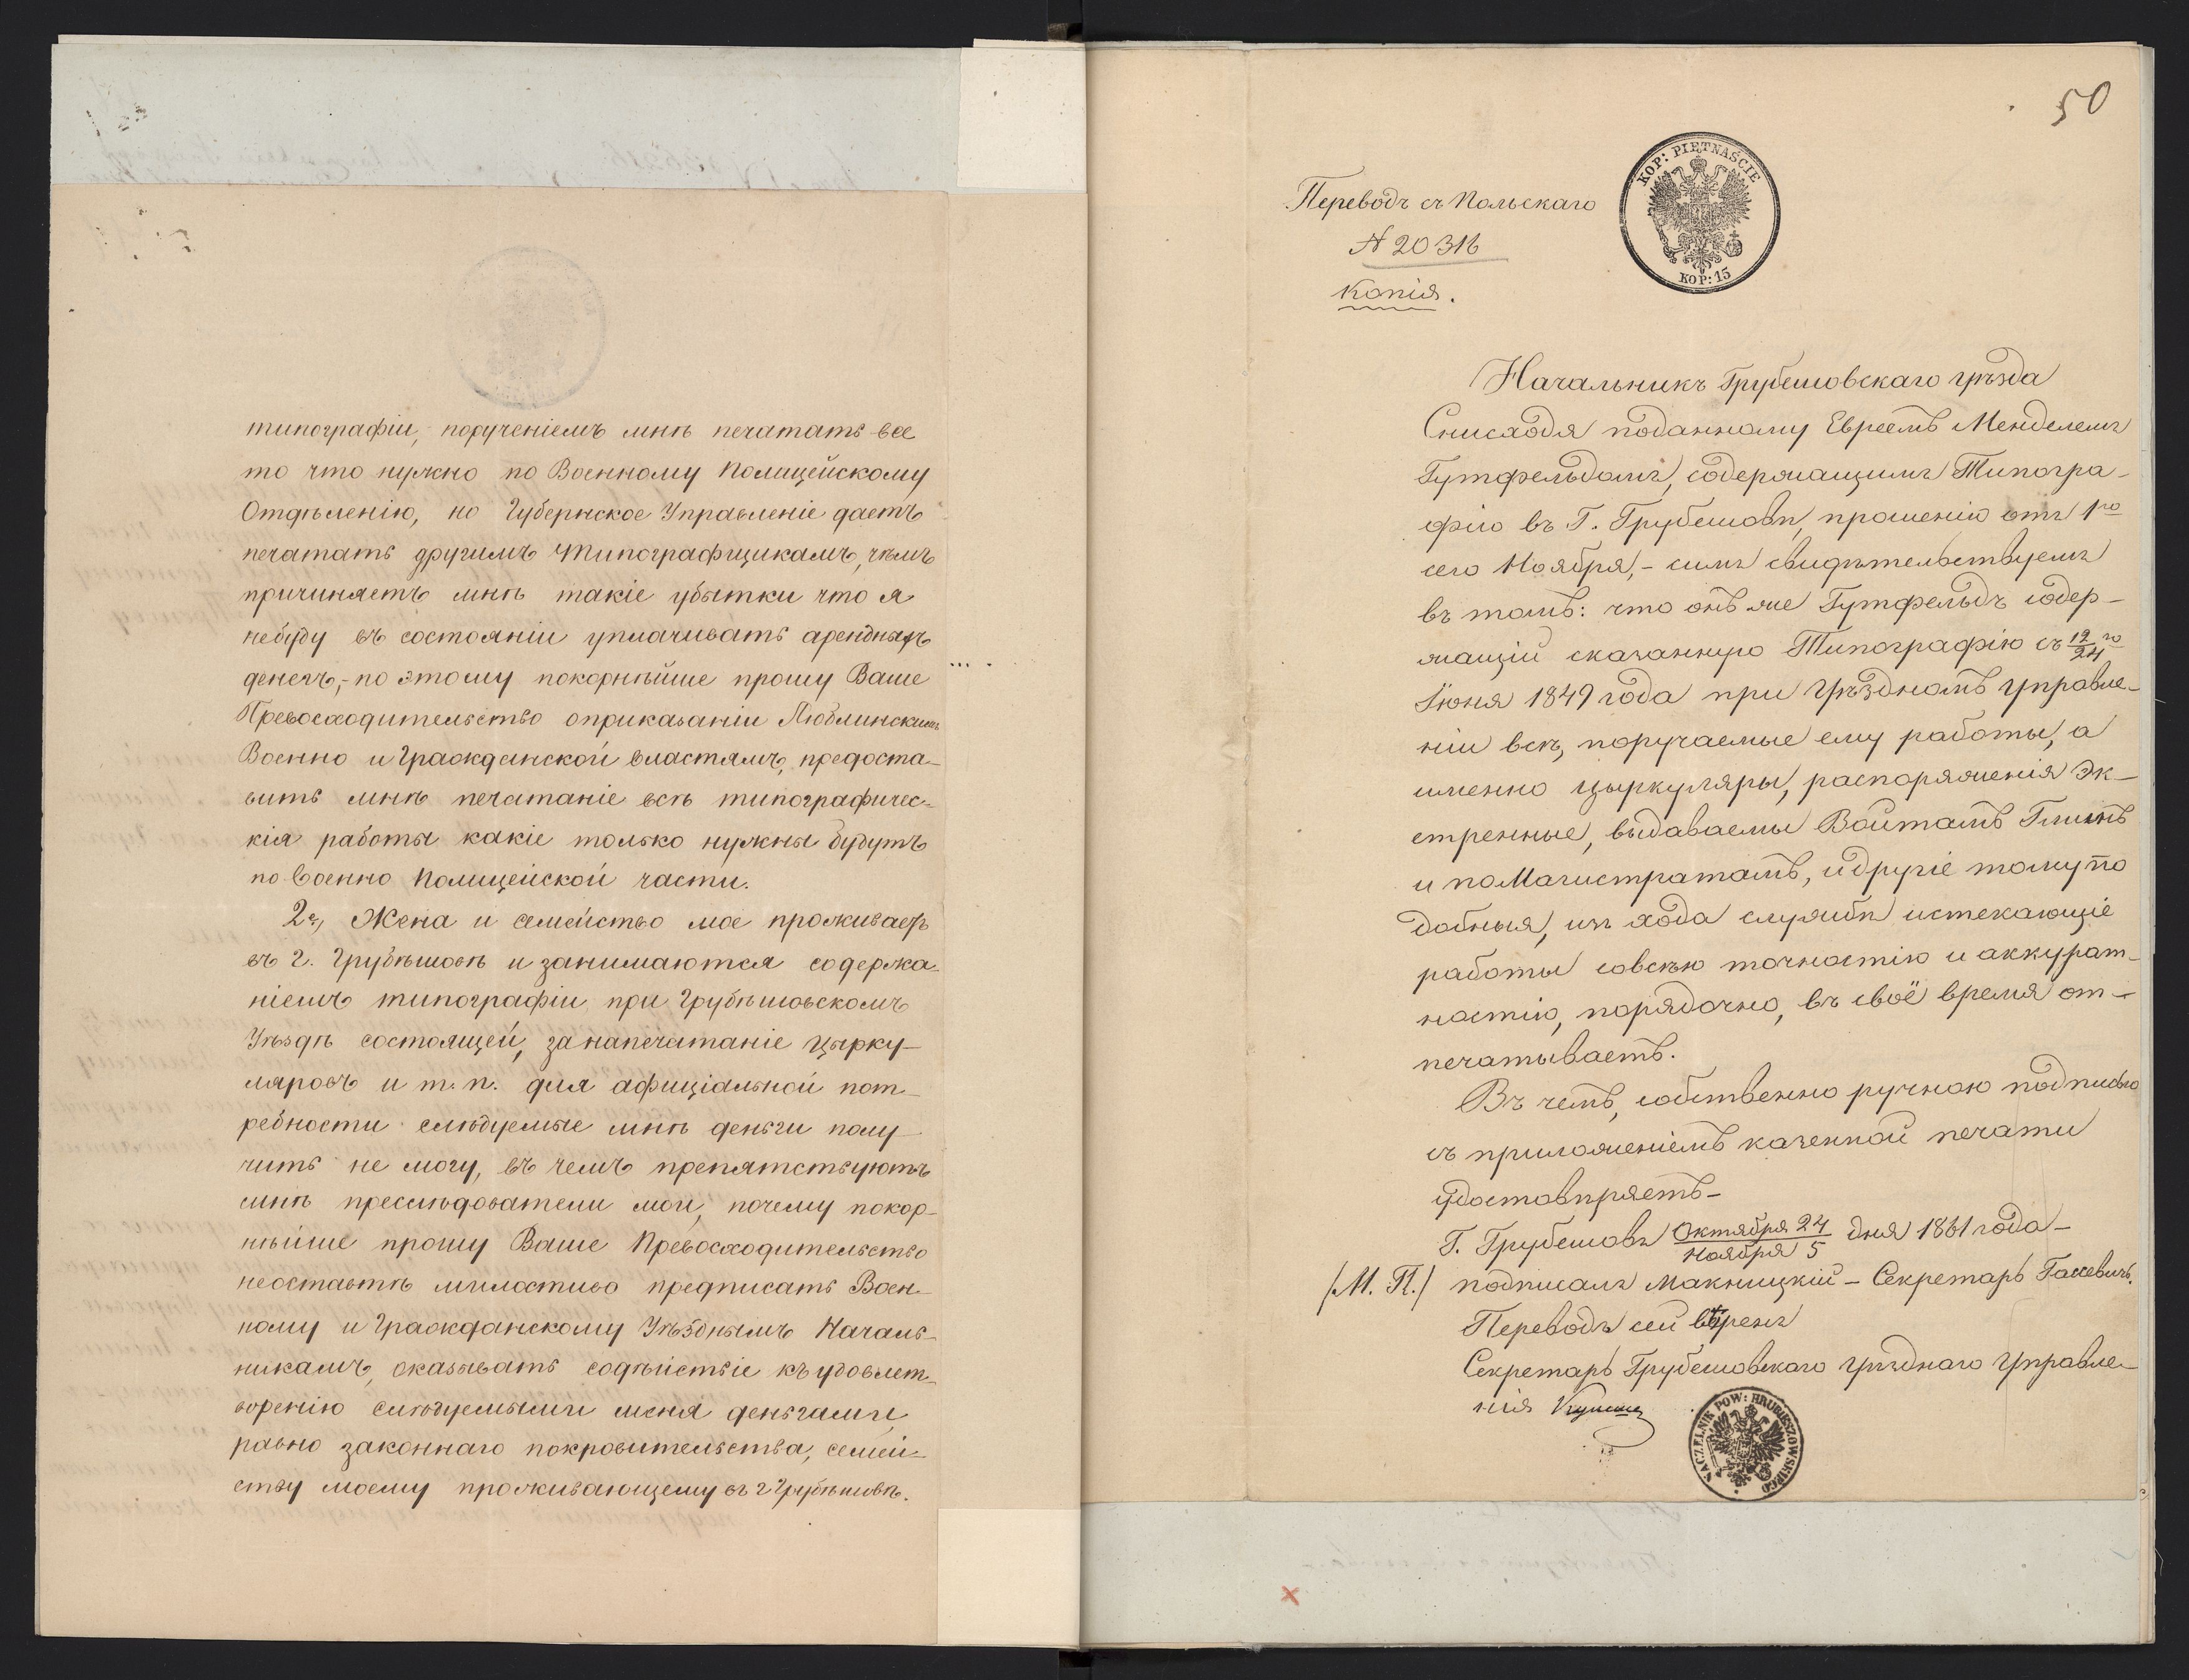 типографіи, порученіемъ мнѣ печатать все
то что нужно по Военному Полицейскому
Отдѣленію, но Губернское Управленіе даетъ
печатать другимъ Типографщикамъ, чѣмъ
причиняетъ мнѣ такіе убытки что я
небуду въ состояніи уплачивать арендныхъ
денегъ,- по этому покорнѣйше прошу Ваше
Превосходительство оприказаніи Люблинскимъ
Военно и Гражданской властямъ, предоста-
вить мнѣ печатаніе всѣ типографичес-
кія работы какіе только нужны будутъ
по Военно Полицейской части.
2е, Жена и семейство мое проживаетъ
въ г. Грубѣшовѣ и занимаются содержа-
ніемъ типографіи при Грубѣшовскомъ
Уѣздѣ состоящей, за напечатаніе цырку-
ляровъ и т. п. для афиціальной пот-
ребности слѣдуемые мнѣ деньги полу-
чить не могу, въ чемъ препятствуютъ
мнѣ преслѣдователи мои, почему покор-
нѣйше прошу Ваше Превосходительство
неоставтѣ милостиво предписать Воен-
ному и Гражданскому Уѣзднымъ Началь-
никамъ, оказывать содѣйствіе къ удовлет-
воренію слѣдуемыми меня деньгами,
равно законнаго покровительства, семей-
ству моему проживающему въ г Грубѣшовѣ.
50
KOP: PIĘTNAŚCIE
KOP: 15
Переводъ съ Польскаго
N 20316
Копія.
Начальникъ Грубешовскаго уѣзда
Снисходя поданному Евреемъ Менделемъ
Гутфельдомъ, содержащимъ Типогра-
фію въ Г. Грубешовѣ, прошенію отъ 1го
сего Ноября,- симъ свидѣтельствуемъ
въ томъ: что онъ же Гутфельдъ содер-
жащій сказанную Типографію съ 12/24го
Іюня 1849 года при Уѣздномъ Управле-
ніи всѣ, поручаемые ему работы, а
именно цыркуляры, распоряженія эк-
стренные, выдаваемы Войтамъ Гминъ
и по Магистратамъ, и другіе тому по
добныя, изъ хода службы истекающіе
работы совсѣю точностію и аккурат-
ностію, порядочно, въ своё время от-
печатываетъ.
Въ чемъ, собственно ручною подписью
съ приложеніемъ казенной печати
удостовѣряетъ-
Г. Грубешовъ Октября 24/Ноября 5 дня 1861 года-
/М. П./ подписалъ Макницкій - Секретарь Гассевичъ.
Переводъ сей вѣренъ
Секретарь Грубешовскаго Уѣзднаго Управле-
нія
NACZELNIK POW: HRUBIESZOWSKIEGO